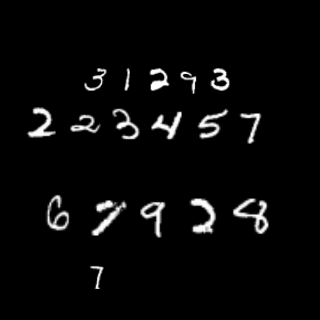 3 1 2 9 3
2 2 3 4 5 7
6 7 9 2 8
7